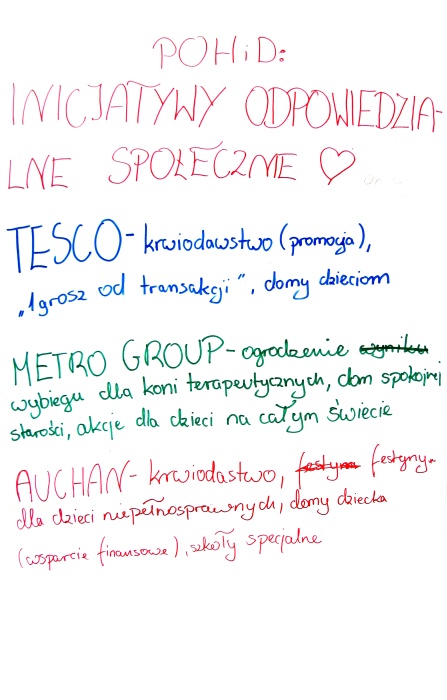 POHiD:
INICJATYWY ODPOWIEDZIA-
LNE SPOŁECZNIE ♡
TESCO - krwiodawstwo (promocja),
„1 grosz od transakcji", domy dzieciom
METRO GROUP - ogrodzenie wyniku
wybiegu dla koni terapeutycznych, dom spokojnej
starości, akcje dla dzieci na całym świecie
AUCHAN - krwiodastwo, festyn festyny
dla dzieci niepełnosprawnych, domy dziecka
(wsparcie finansowe), szkoły specjalne